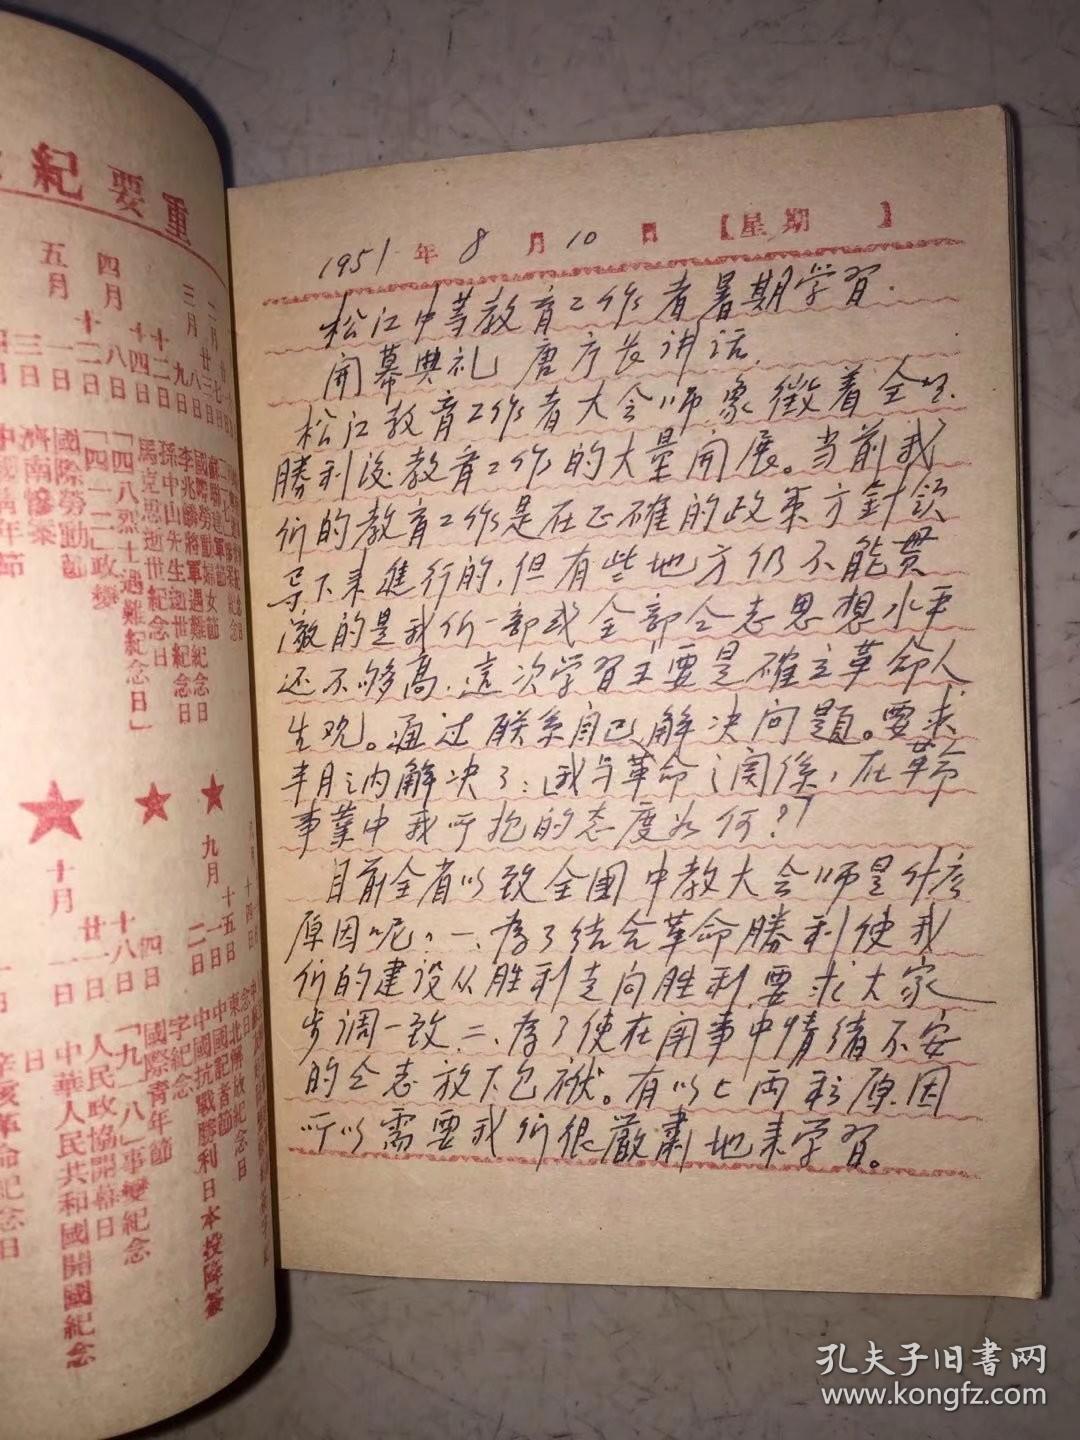 重要紀
二月
三月
四月
五月
廿三日
八日
九日
十二日
十四日
八日
十二日
一日
三日
四日
國際勞動婦女節
李兆麟將軍遇難紀念日
孫中山先生逝世紀念日
馬克思逝世紀念日
「四八烈士遇難紀念日」
「四一二」政變
國際勞動節
濟南慘案
中國青年節
九月
十月
十五日
一日
二日
四日
十八日
廿一日
一日
東北解放紀念日
中國記者節
中國抗戰勝利日本投降簽
字紀念
國際青年節
「九一八」事變紀念
人民政協開幕日
中華人民共和國開國紀念
日
辛亥革命紀念日
1951年 8月10日【星期 】
松江中等教育工作者暑期学習.
開幕典礼 唐厅长讲话.
松江教育工作者大会师象徵着全国
勝利后教育工作的大量開展。当前我
们的教育工作是在正确的政策方針领
导下来進行的,但有些地方仍不能貫
澈的是我们一部或全部仝志思想水平
还不够高.這次学習主要是確立革命人
生观。通过联系自己解决问题。要求
半月之内解决了:我与革命之関係,在革命
事業中我所抱的态度如何?
目前全省以致全國中教大会师是什么
原因呢,一、为了结合革命勝利使我
们的建设从胜利走向胜利要求大家
步调一致 二、为了使在開事中情绪不安
的仝志放下包袱。有以上两种原因
所以需要我们很嚴肅地来学習。
孔夫子旧書网
www.kongfz.com